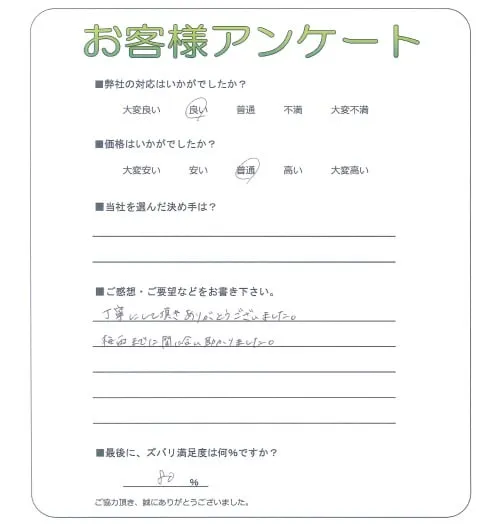 お客様アンケート
■弊社の対応はいかがでしたか？
大変良い 良い 普通 不満 大変不満
■価格はいかがでしたか？
大変安い 安い 普通 高い 大変高い
■当社を選んだ決め手は？
■ご感想・ご要望などをお書き下さい。
丁寧にして頂きありがとうございました。
梅雨までに間に合い助かりました。
■最後に、ズバリ満足度は何％ですか？
80 %
ご協力頂き、誠にありがとうございました。